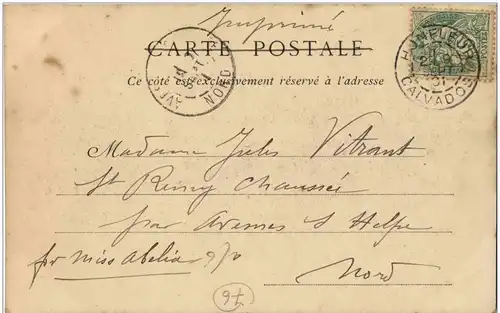 Imprimé
CARTE POSTALE
Ce côté est exclusivement réservé à l'adresse
HONFLEUR
CALVADOS
NORD
Madame Jules Vitrant
St Remy Chaussée
par Avesnes s Helpe
for miss Abelia
Nord
97